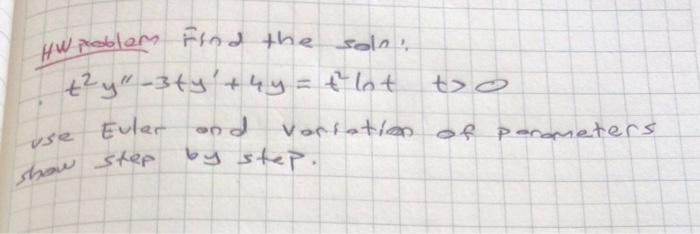 HW problem Find the soln:
t²y" - 3ty' + 4y = t² ln t t>0
use Euler and variation of parameters
show step by step.